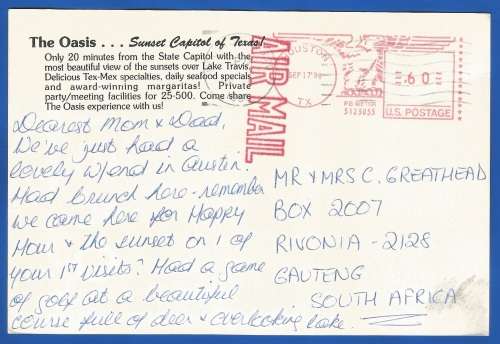 The Oasis . . . Sunset Capitol of Texas!
Only 20 minutes from the State Capitol with the
most beautiful view of the sunsets over Lake Travis.
Delicious Tex-Mex specialties, daily seafood specials
and award-winning margaritas! Private
party/meeting facilities for 25-500. Come share
The Oasis experience with us!
AIR MAIL
HOUSTON
SEP 17'98
TX
PB METER
5125055
.60
U.S. POSTAGE
Dearest Mom & Dad,
We've just had a
lovely w/end in Austin.
Had brunch here - remember
we came here for Happy
Hour & the sunset on 1 of
your 1st visits? Had a game
of golf at a beautiful
course full of deer & overlooking lake.
MR & MRS C. GREATHEAD
BOX 2007
RIVONIA - 2128
GAUTENG
SOUTH AFRICA